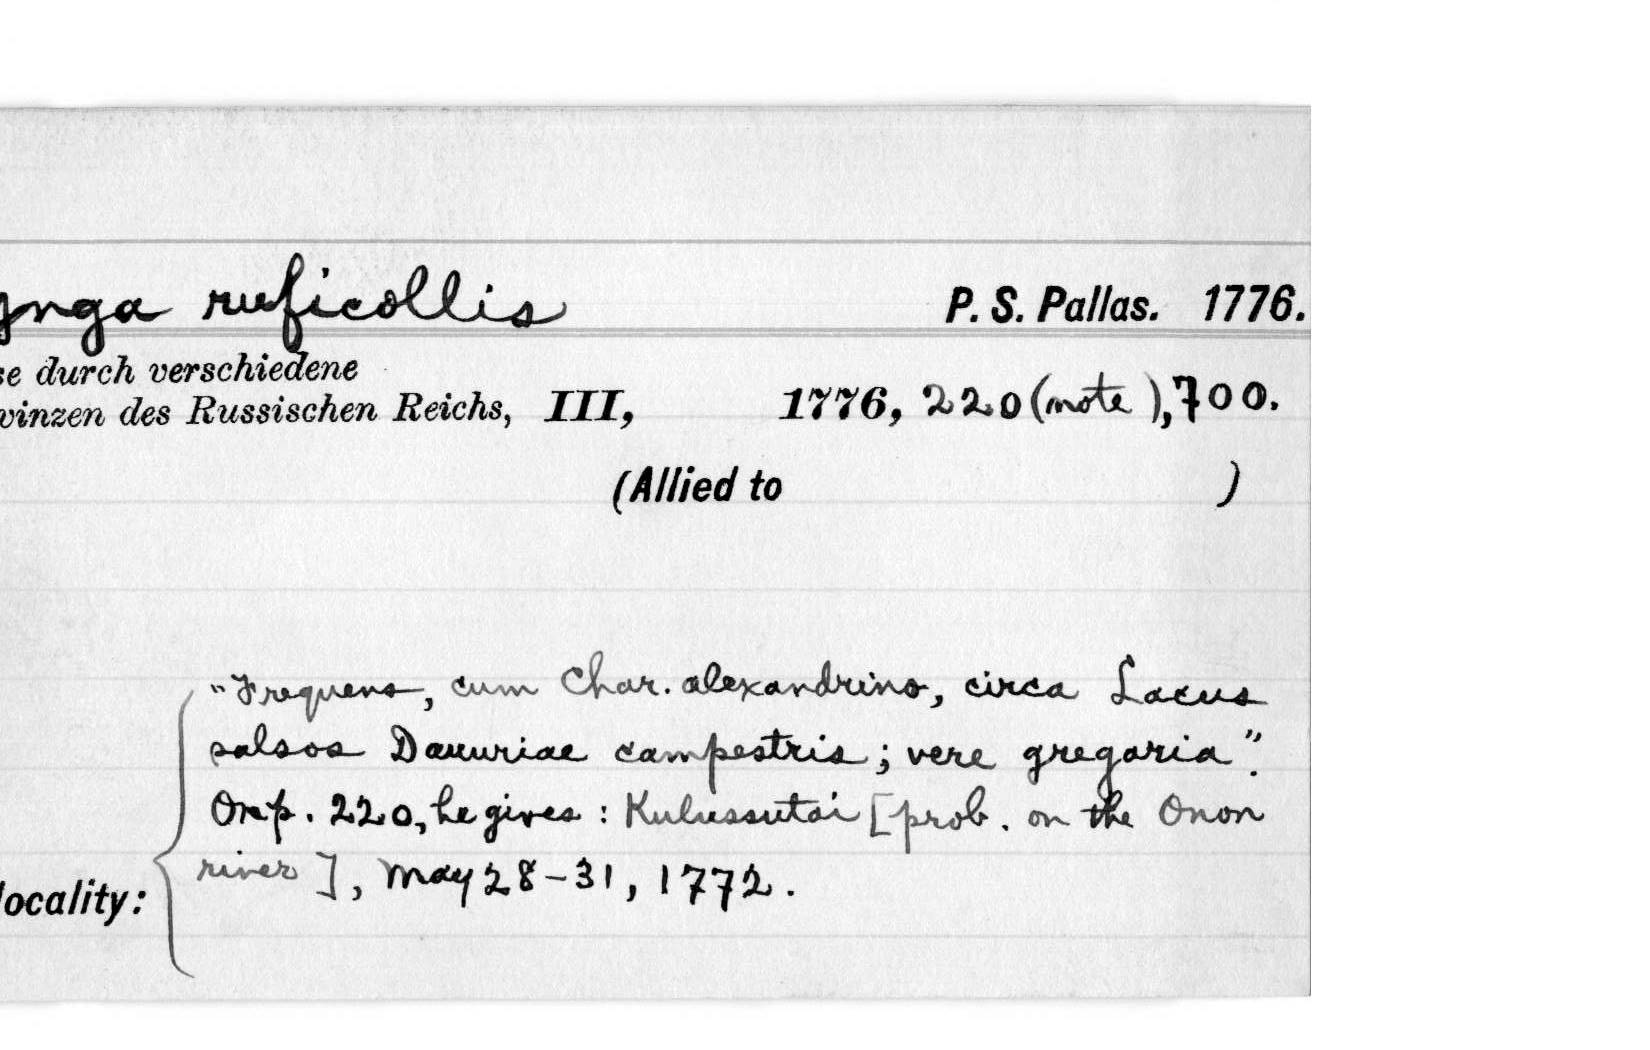 ynga ruficollis P. S. Pallas. 1776.
se durch verschiedene
vinzen des Russischen Reichs, III, 1776, 220 (note), 700.
(Allied to )
"Frequens, cum Char. alexandrino, circa Lacus
salsos Dauuriae campestris; vere gregaria".
On p. 220, he gives: Kulussutai [prob. on the Onon
river], May 28-31, 1772.
locality: